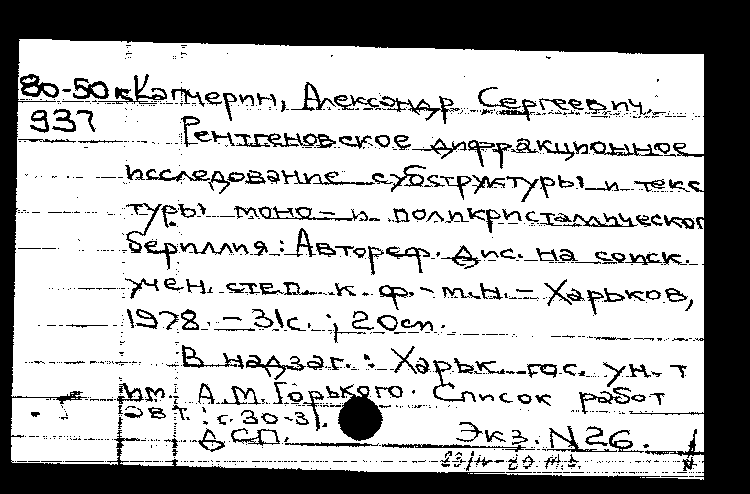 80-50к Капчерин, Александр Сергеевич.
937 Рентгеновское дифракционное
исследование субструктуры и текс
туры моно- и поликристаллического
бериллия: Автореф. дис. на соиск.
учен. степ. к. ф.-м.н. - Харьков,
1978. - 31с. ; 20см.
В надзаг.: Харьк. гос. ун-т
им. А.М. Горького. Список работ
авт.: с. 30-31.
ДСП. Экз. N26.
23/IV-80